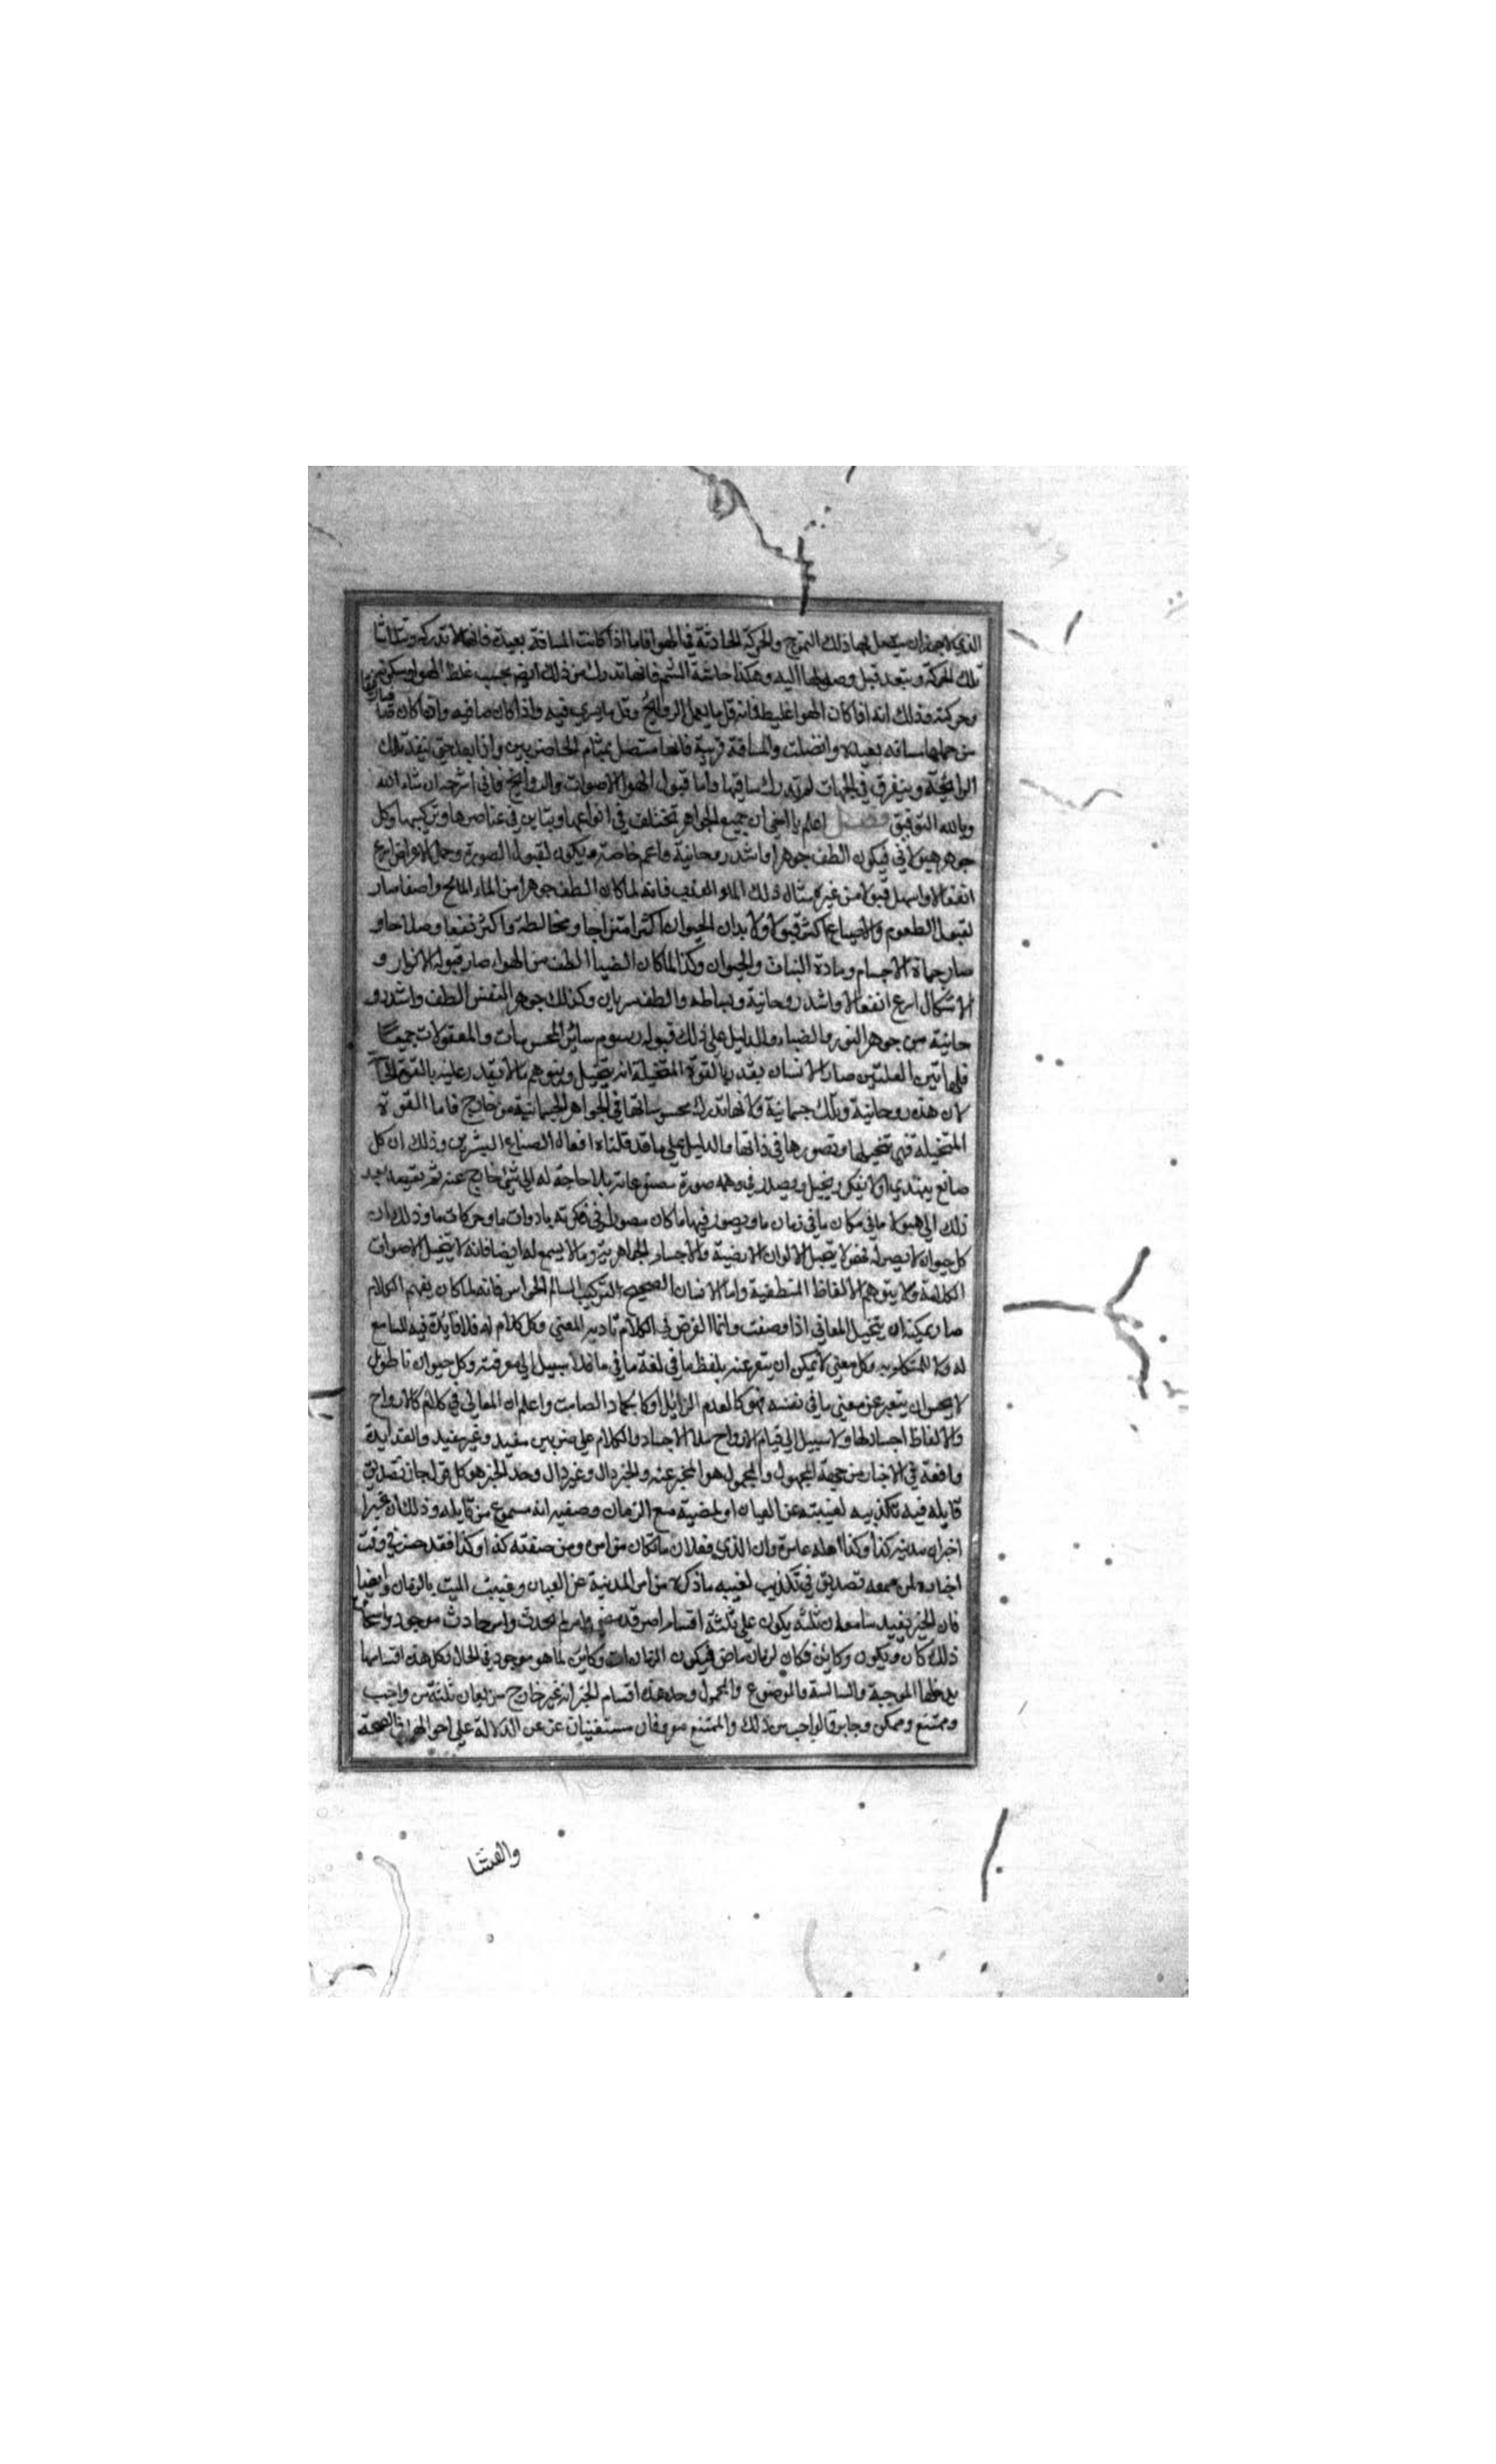 الذي لاجله ان يتصل بها ذلك التموج والحركة الحادثة في الهوا فاما اذا كانت المسافة بعيدة فانها لا تدركه وتتلاشا
تلك الحركة وتبعد قبل وصولها اليه وهكذا حاسة الشم فانها تدرك من ذلك ايضا بحسب غلظ الهوا وسكونه
وحركته وذلك انه اذا كان الهوا غليظا فانه قل ما يحمل الروائح وقل ما يسري فيه واذا كان صافيه
من حملها مسافه بعيده واتصلت والمسافة قريبة فانها متصل بمشام الحاضرين واذا بعد حتى تنفد تلك
الرائحة ويتفرق في الجهات لم تدرك ساقها واما قبول الهوا الاصوات والروائح فاني اشرحه ان شاء الله
وبالله التوفيق فصل اعلم يا اخي ان جميع الجواهر تختلف في انواعها وتباين في عناصرها وتركيبها وكل
جوهر هيولاني فيكون الطف جوهرا واشد روحانية واعم خاصة يكون لقبول الصورة وحمل الاعراض اسرع
انفعالا واسهل قبولا من غيره مثال ذلك الماء العذب فانه لما كان الطف جوهرا من الماء المالح واصفا صار
لقبول الطعوم والاصباغ اكثر قبولا ولابدان الحيوان اكثر امتزاجا ومخالطة واكثر نفعا وصلاحا و
صار حياة الاجسام ومادة النبات والحيوان وكذا لما كان الضيا الطف من الهواء صار قبوله الانوار و
الاشكال اسرع انفعالا واشد روحانية وبساطه والطف سريان وكذلك جوهر النفس الطف واشد رو
حانية من جوهر النور والضياء والدليل على ذلك قبوله رسوم سائر المحسوسات والمعقولات جميعا
فلهاتين العلتين صار الانسان يقدر بالقوة المتخيلة ان يتخيل ويتوهم ما لا يقدر عليه بالقوة
لان هذه روحانية وتلك جسمانية ولانها تدرك محسوساتها في الجواهر الجسمانية من خارج فاما القوة
المتخيلة فهي تتخيلها وتصورها في ذاتها والدليل على ما قد قلناه افعال الصناع البشريين وذلك ان كل
صانع يبتدي اولا يفكر ويتخيل ويصور في وهمه صورة مصنوعاته بلا حاجة له الى شئ خارج عنه ثم يقصد بعد
ذلك الى هيولا ما في مكان ما في زمان ما ويصور فيها ما كان مصورا في فكرته بادوات ما وحركات ما وذلك ان
كل حيوان لا بصر له فهو لا يتخيل الالوان والاجسام الجواهرية وما لا يسمع له ايضا فانه لا يتخيل الاصوات
الكلامية ولا يتوهم الالفاظ المنطقية واما الانسان الصحيح التركيب السالم الحواس فانه لما كان يفهم الكلام
صار يمكنه ان يتخيل المعاني اذا وصفت وانما الغرض في الكلام تادية المعنى وكل كلام له فلا فايدة فيه للسامع
له ولا للمتكلم به وكل معنى لا يمكن ان يعبر عنه بلفظ ما في لغة ما فلا سبيل الى معرفته وكل حيوان ناطق
لا يحسن ان يعبر عن معنى ما في نفسه فهو كالعدم الزايل او كالجماد الصامت واعلم ان المعاني في كلام كالارواح
والالفاظ اجسادها ولا سبيل الى قيام الارواح الاجساد والكلام على ضربين مفيد وغير مفيد والفايدة
واقعة في الاخبار من جهة المجهول والمحمول هو المخبر عنه والخبر دال وغير دال وحد الخبر هو كل قول جاز تصديق
قايله فيه تكذيبه لغيبته عن العيان او لمضيه مع الزمان وصفته انه مسموع من قايله وذلك ان مخبرا
اخبر ان مدينة كذا وكذا اهله عامرة وان الذي فعلان ما كان من امره ومن صفته كذا وكذا فقد حسن في وقت
اخباره لمن سمعه تصديق في تكذيب لغيبه ما ذكره من امر المدينة عن العيان وغيبت الميت بالزمان وايضا
فان الخبر يفيد سامعه يكون على ثلثة اقسام امر قد مضى وامر لم يحدث وامر حادث موجود واسماء
ذلك كان ويكون وكاين فكان لزمان ماض فيكون الزمان ات وكاين لما هو موجود في الحال وكل هذه اقسامها
يدخلها الموجبة والسالبة والموضوع والمحمول وحد هذه اقسام الخبر انه غير خارج من معان ثلثة من واجب
وممتنع وممكن وجايز فالواجب من ذلك والممتنع معروفان مستغنيان عن الدلالة على احوالهما في الصحة
والفسا